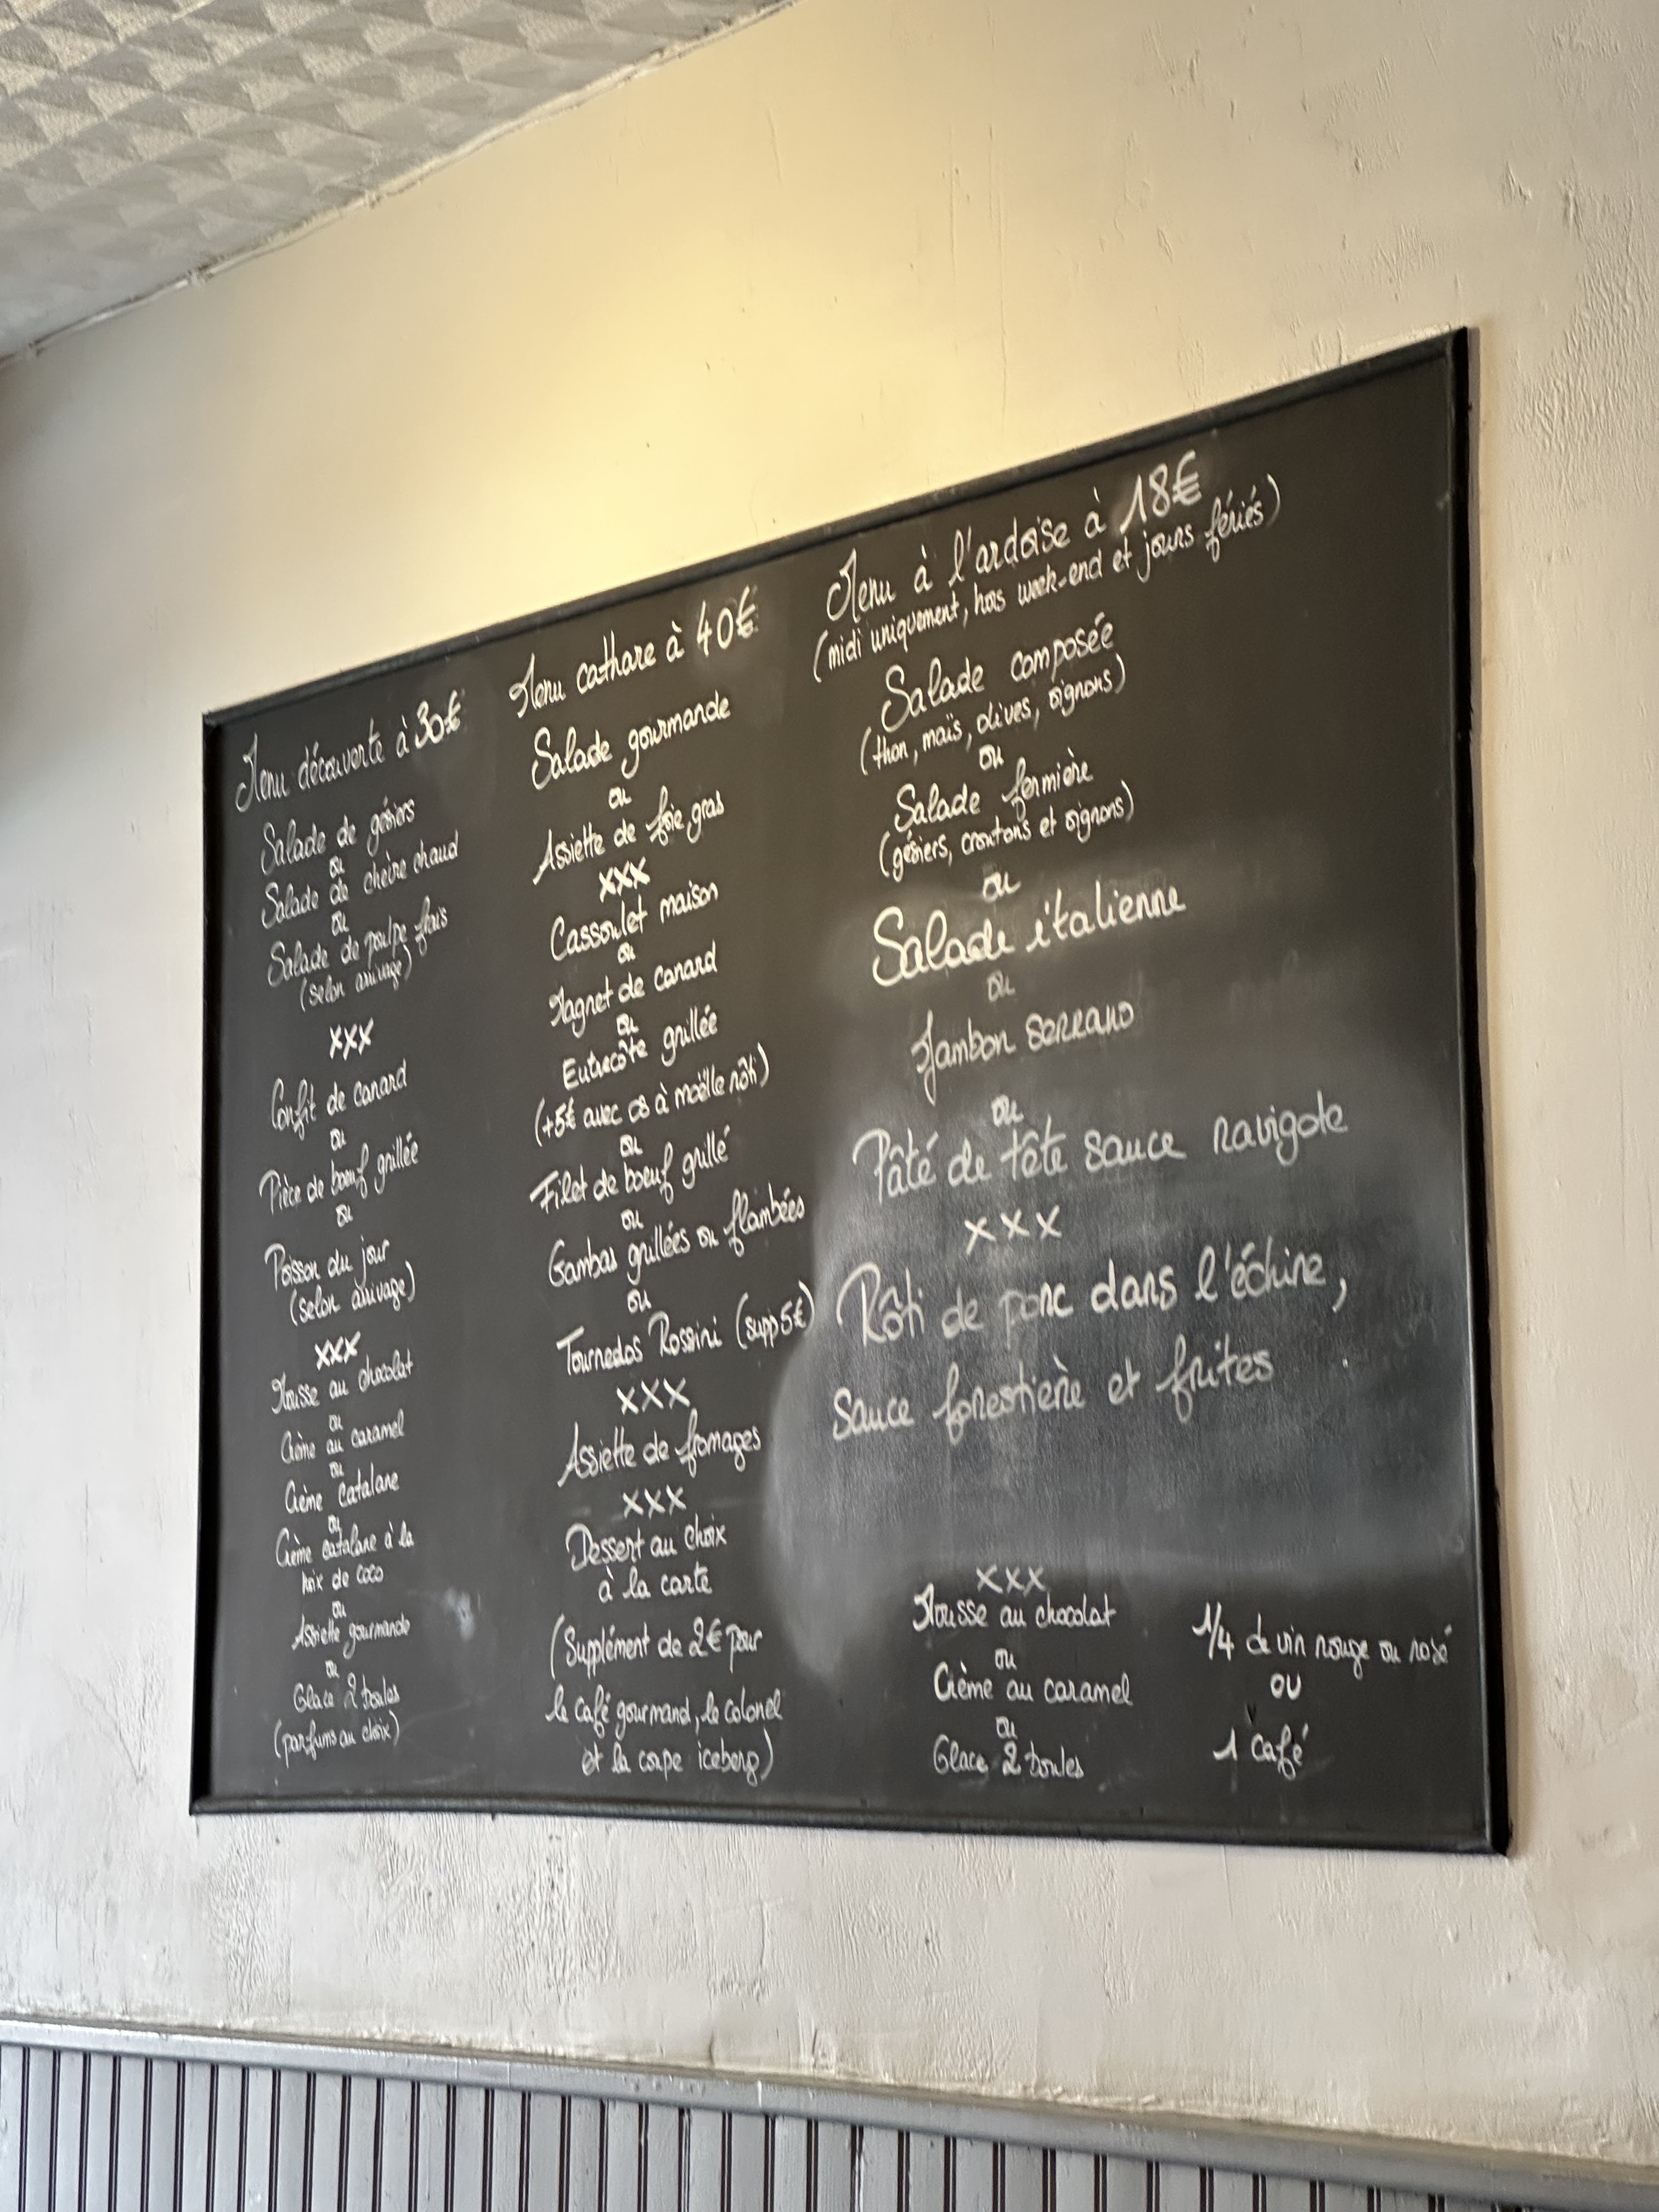 Menu découverte à 30€
Salade de gésiers
ou
Salade de chèvre chaud
ou
Salade de poulpe frais
(selon arrivage)
xxx
Confit de canard
ou
Pièce de boeuf grillée
ou
Poisson du jour
(selon arrivage)
xxx
Mousse au chocolat
ou
Crème au caramel
ou
Crème catalane
ou
Crème catalane à la
noix de coco
ou
Assiette gourmande
ou
Glace 2 boules
(parfums au choix)
Menu cathare à 40€
Salade gourmande
ou
Assiette de foie gras
xxx
Cassoulet maison
ou
Magret de canard
ou
Entrecôte grillée
(+5€ avec os à moëlle rôti)
ou
Filet de boeuf grillé
ou
Gambas grillées ou flambées
ou
Tournedos Rossini (supp 5€)
xxx
Assiette de fromages
xxx
Dessert au choix
à la carte
(Supplément de 2€ pour
le café gourmand, le colonel
et la coupe iceberg)
Menu à l'ardoise à 18€
(midi uniquement, hors week-end et jours fériés)
Salade composée
(thon, maïs, olives, oignons)
ou
Salade fermière
(gésiers, croutons et oignons)
ou
Salade italienne
ou
Jambon serrano
ou
Pâté de tête sauce ravigote
xxx
Rôti de porc dans l'échine,
sauce forestière et frites
xxx
Mousse au chocolat
ou
Crème au caramel
ou
Glace 2 boules
1/4 de vin rouge ou rosé
OU
1 café